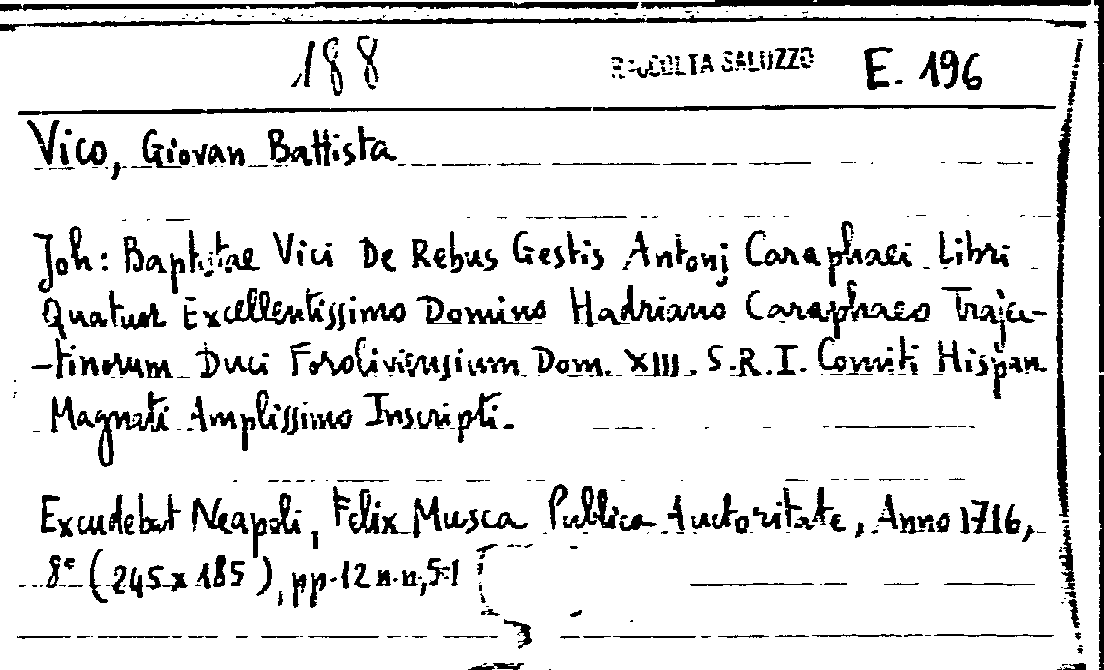 188 RACCOLTA SALUZZO E. 196
Vico, Giovan Battista
Joh: Baptistae Vici De Rebus Gestis Antonj Caraphaei Libri
Quatuor Excellentissimo Domino Hadriano Caraphaeo Trajec-
-tinorum Duci Foroliviensium Dom. XIII. S.R.I. Comiti Hispan.
Magnati Amplissimo Inscripti.
Excudebat Neapoli, Felix Musca Publica Auctoritate, Anno 1716,
8° (245 x 185), pp. 12 n.n,